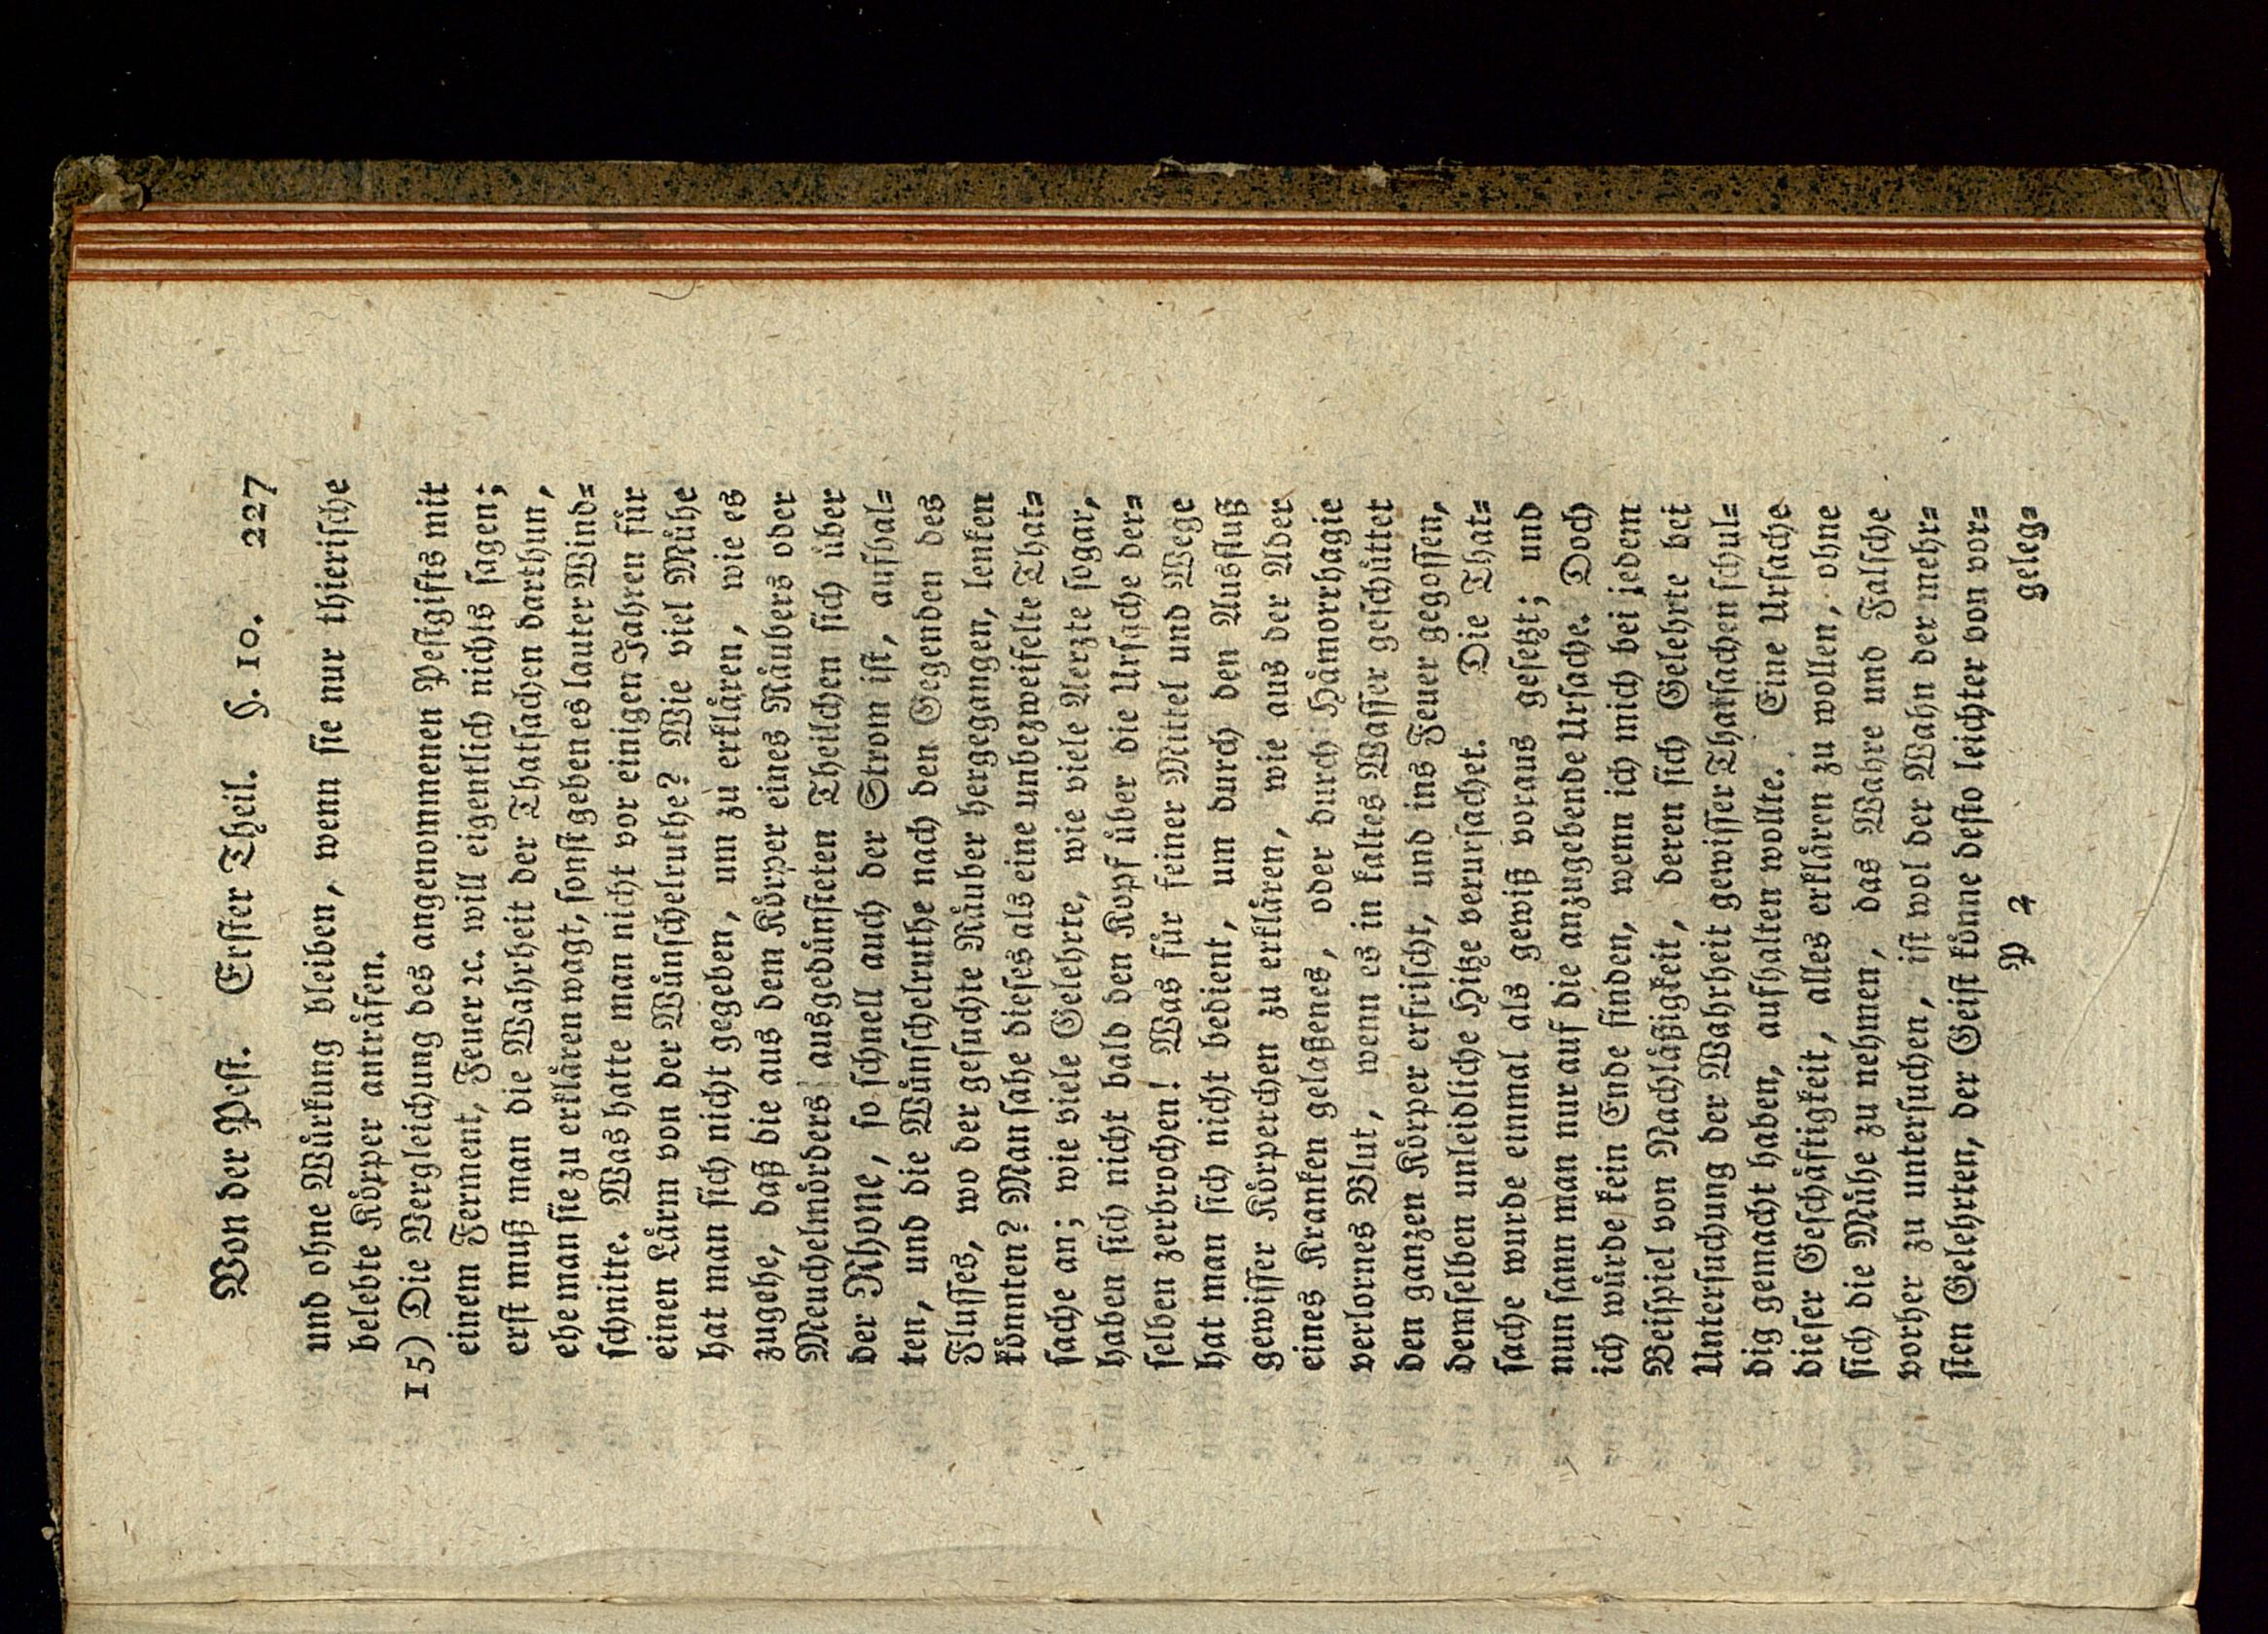 Von der Pest. Erster Theil. §. 10. 227
und ohne Wůrkung bleiben, wenn sie nur thierische
belebte Kőrper antråfen.
15) Die Vergleichung des angenommenen Pestgifts mit
einem Ferment, Feuer ꝛc. will eigentlich nichts sagen;
erst muß man die Wahrheit der Thatsachen darthun,
ehe man sie zu erklåren wagt, sonst geben es lauter Wind⸗
schnitte. Was hatte man nicht vor einigen Jahren fůr
einen Lårm von der Wůnschelruthe? Wie viel Můhe
hat man sich nicht gegeben, um zu erklåren, wie es
zugehe, daß die aus dem Kőrper eines Råubers oder
Meuchelmőrders ausgedůnsteten Theilchen sich ůber
der Rhone, so schnell auch der Strom ist, aufhal⸗
ten, und die Wůnschelruthe nach den Gegenden des
Flusses, wo der gesuchte Råuber hergegangen, lenken
kőnnten? Man sahe dieses als eine unbezweifelte That⸗
sache an; wie viele Gelehrte, wie viele Aerzte sogar,
haben sich nicht bald den Kopf ůber die Ursache der⸗
selben zerbrochen! Was fůr feiner Mittel und Wege
hat man sich nicht bedient, um durch den Ausfluß
gewisser Kőrperchen zu erklåren, wie aus der Ader
eines Kranken gelaßenes, oder durch Håmorrhagie
verlornes Blut, wenn es in kaltes Wasser geschůttet
den ganzen Kőrper erfrischt, und ins Feuer gegossen,
demselben unleidliche Hitze verursachet. Die That⸗
sache wurde einmal als gewiß voraus gesetzt; und
nun sann man nur auf die anzugebende Ursache. Doch
ich wůrde kein Ende finden, wenn ich mich bei jedem
Beispiel von Nachlåßigkeit, deren sich Gelehrte bei
Untersuchung der Wahrheit gewisser Thatsachen schul⸗
dig gemacht haben, aufhalten wollte. Eine Ursache
dieser Geschåftigkeit, alles erklåren zu wollen, ohne
sich die Můhe zu nehmen, das Wahre und Falsche
vorher zu untersuchen, ist wol der Wahn der mehr⸗
sten Gelehrten, der Geist kőnne desto leichter von vor⸗
P 2 geleg⸗